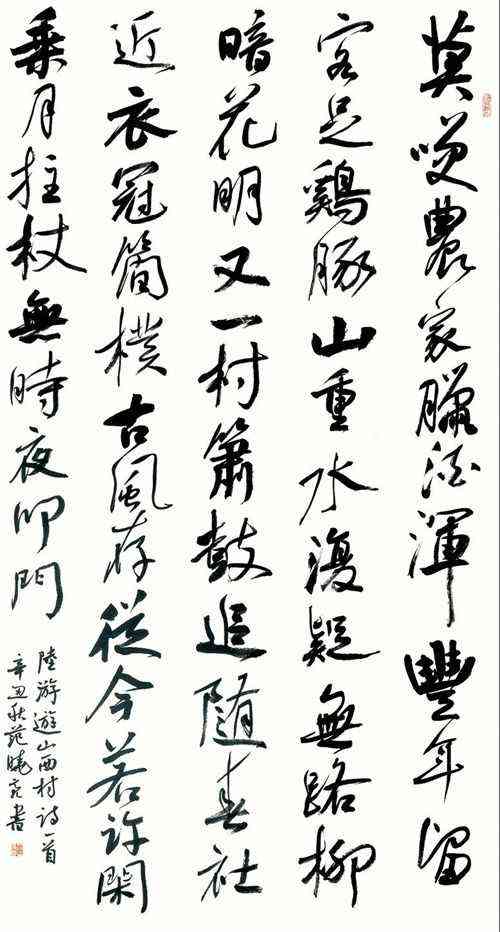 莫咲農家臘酒渾豐年留
客足鷄豚山重水復疑無路柳
暗花明又一村簫鼓追隨春社
近衣冠簡樸古風存從今若許閑
乘月拄杖無時夜叩門
陸游遊山西村诗一首
辛丑秋范曉亮書